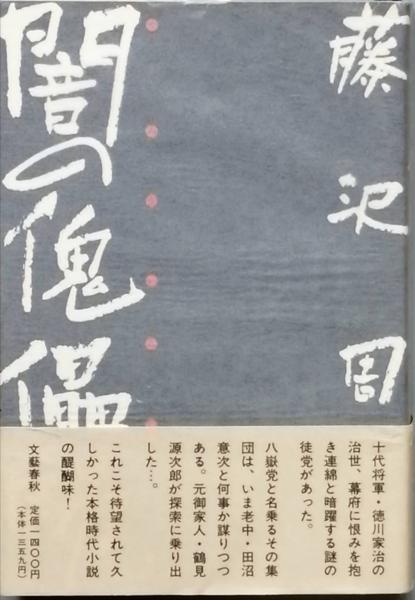 藤沢周
闇の傀儡
十代将軍・徳川家治の
治世、幕府に恨みを抱
き連綿と暗躍する謎の
徒党があった。
八嶽党と名乗るその集
団は、いま老中・田沼
意次と何事か謀りつつ
ある。元御家人・鶴見
源次郎が探索に乗り出
した…。
これこそ待望されて久
しかった本格時代小説
の醍醐味！
文藝春秋 定価一四〇〇円
（本体一三五九円）